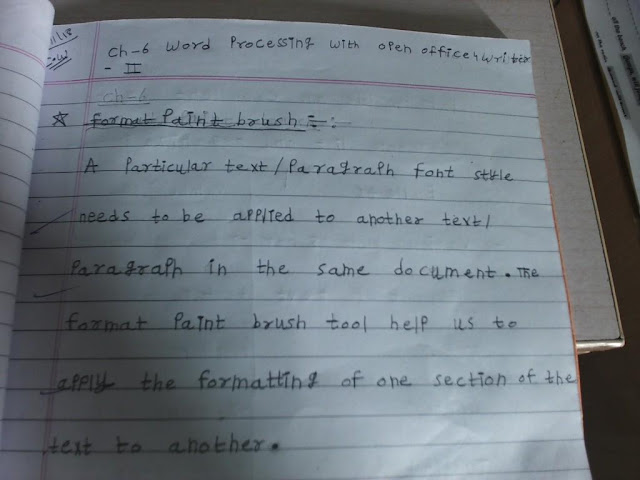 Ch-6 Word Processing with open office writer
- II
Ch-6
☆ Format Paint brush :- :
A Particular text / Paragraph font style
needs to be applied to another text /
Paragraph in the same document. The
format Paint brush tool help us to
apply the formatting of one section of the
text to another.